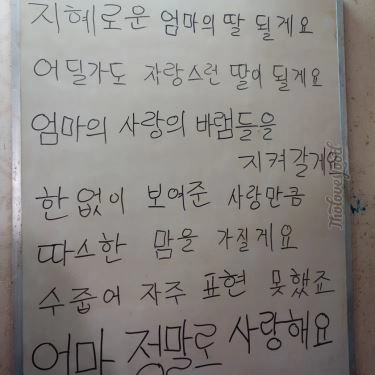 지혜로운 엄마의 딸 될게요
어딜가도 자랑스런 딸이 될게요
엄마의 사랑의 바램들을
지켜갈게요
한 없이 보여준 사랑만큼
따스한 맘을 가질게요
수줍어 자주 표현 못했죠
엄마 정말로 사랑해요
Tholovefood